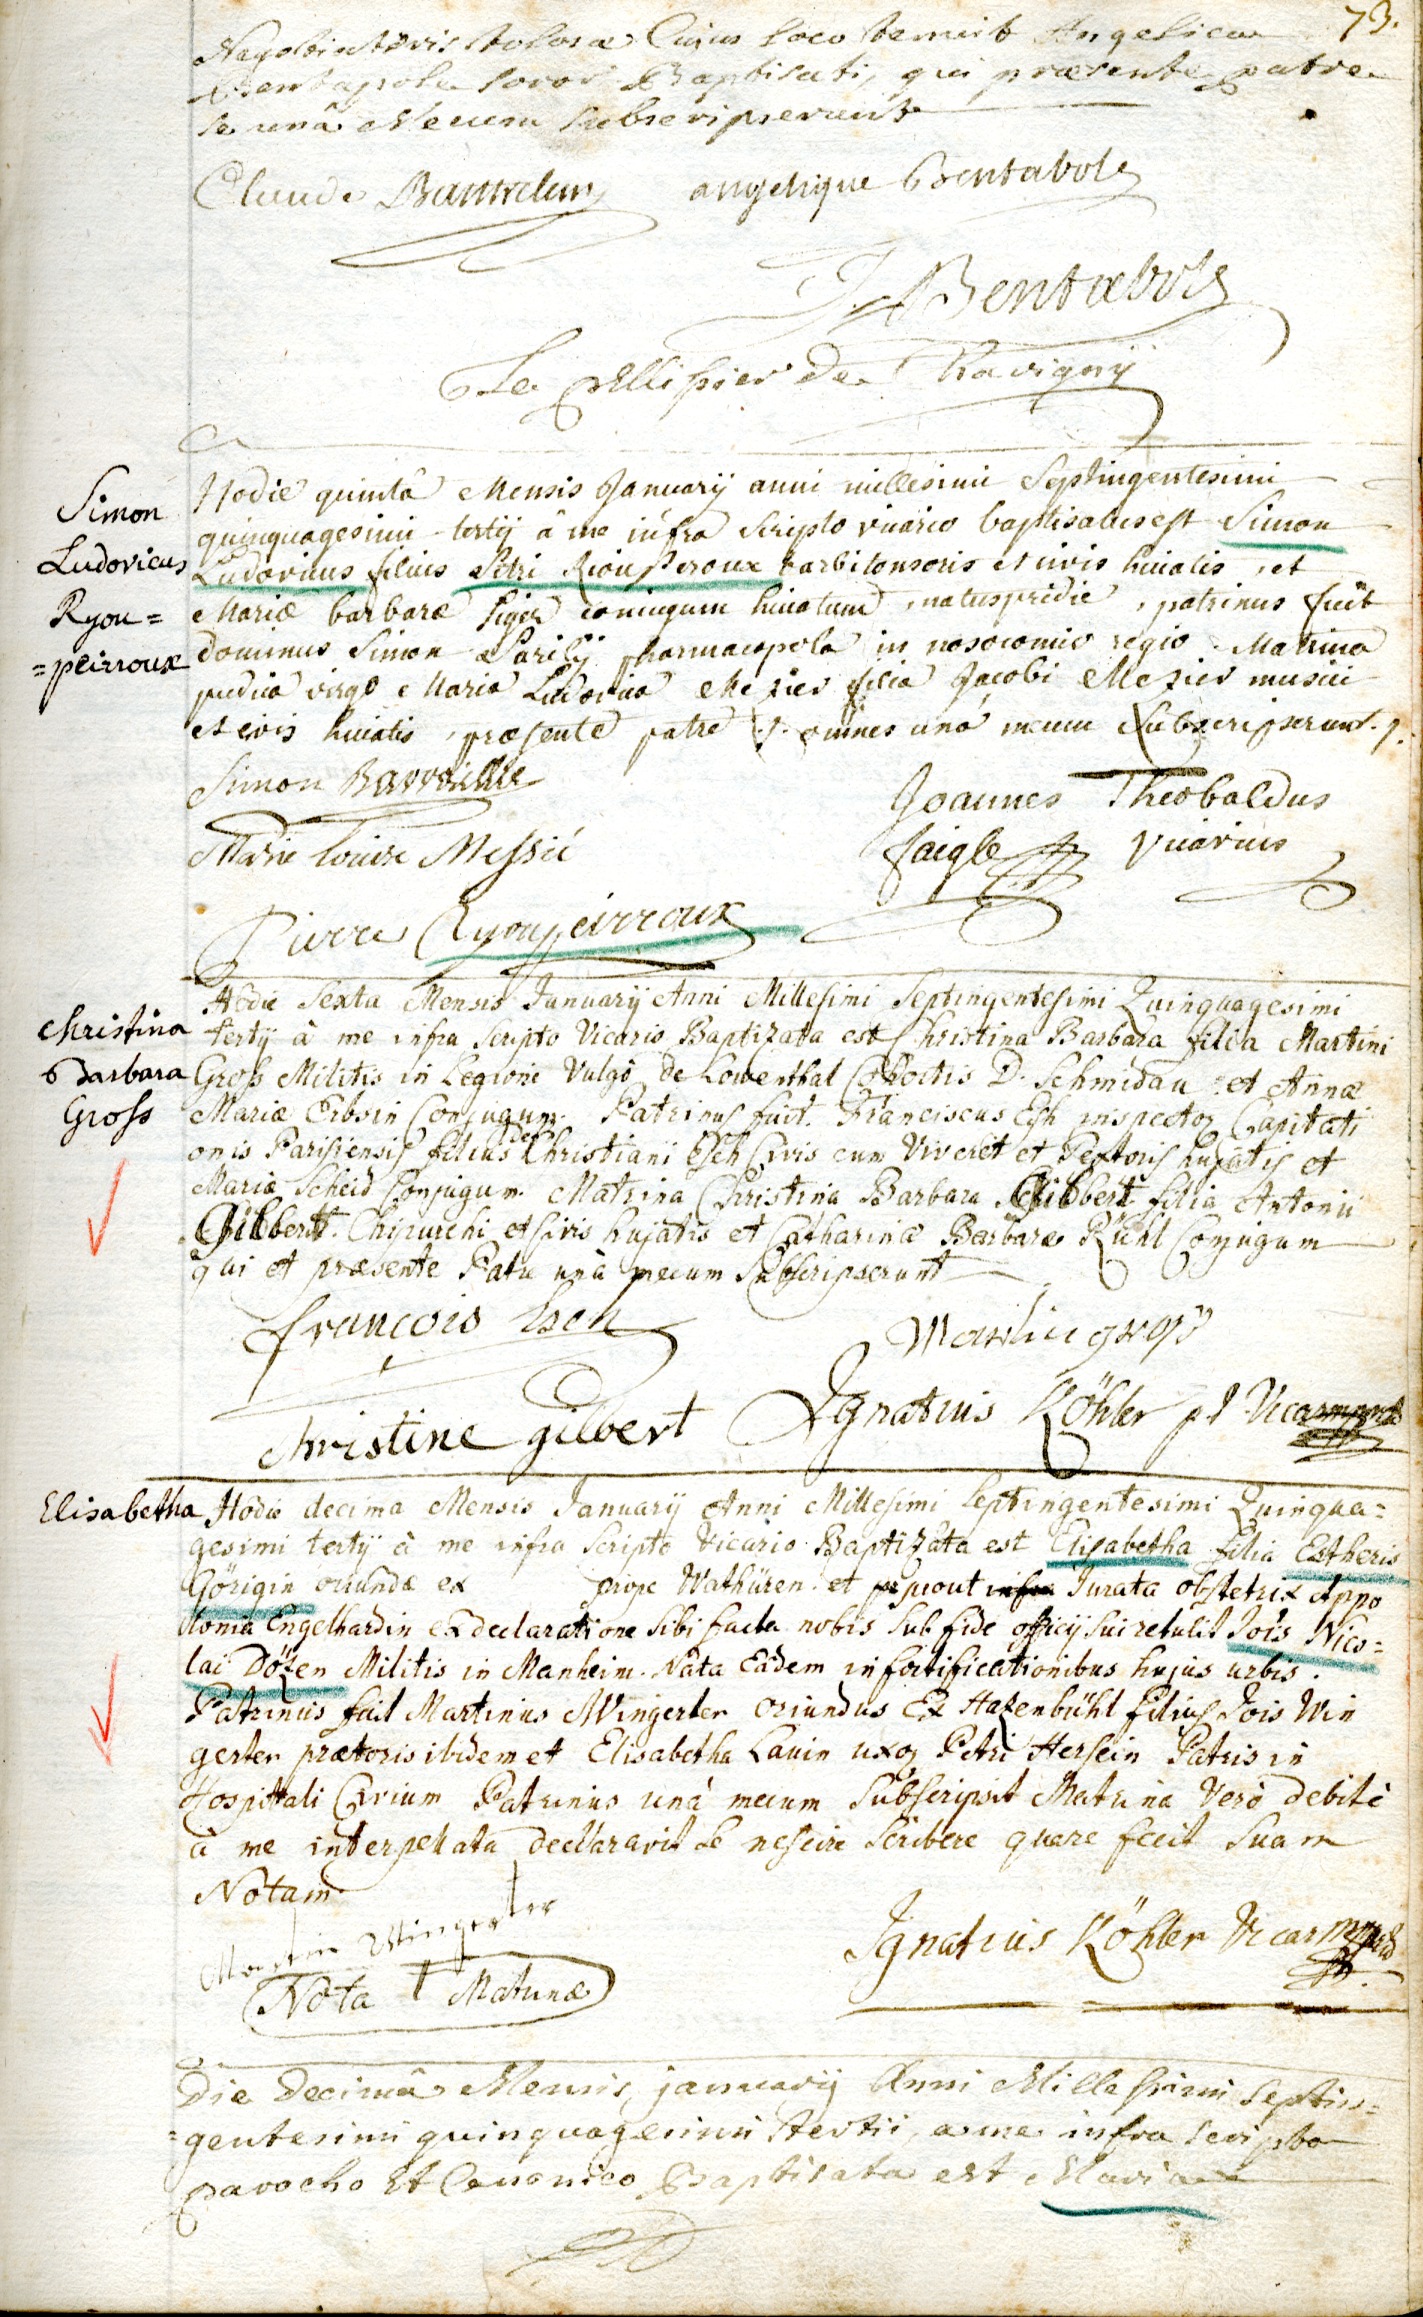 73.
loco tenuit Angelica
soror Baptisati, qui præsente patre
se unâ mecum subscripserunt
Claude angelique Bentabole
J. Bentabole
Le Pellissier De Ravignÿ
Simon
Ludovicus
Ryou=
=peirroux
Hodie quintâ Mensis Januarij anni millesimi Septingentesimi
quinquagesimi tertij â me infra scripto vicario baptisatus est Simon
Ludovicus filius Petri Riouperoux barbitonsoris et civis huiatis, et
Mariæ barbaræ conjugum huiatum, natus pridie, patrinus fuit
dominus Simon pharmacopola in nosocomio regio. Matrina
pudica virgo Maria Ludovica Mezier filia Jacobi Mezier musici
et civis huiatis, præsente patre omnes unâ mecum subscripserunt.
Simon
Joannes Theobaldus
Marie louise Messié
faigle vicarius
Pierre Ryoupeirroux
Christina
Barbara
Gross
Hodie Sexta Mensis Januarij Anni Millesimi Septingentesimi Quinquagesimi
tertij à me infra scripto Vicario Baptizata est Christina Barbara filia Martini
Gross Militis in Legione Vulgò de Lowenthal Cohortis D. Schmidau et Annæ
Mariæ Erbsin Conjugum. Patrinus fuit Franciscus Esh inspector Capitati
onis Parisiensis filius des Christiani Esch Civis cum Viveret et Pextoris hujatis et
Mariæ Scheid Conjugum. Matrina Christina Barbara Gilbert filia Antonii
Gilbert Chirurchi et Civis hujatis et Catharinæ Barbaræ Rühl Conjugum
qui et præsente Patre unà mecum Subscripserunt
françois Esch
Martin gross
Christine gilbert Ignatius Köhler p t Vicar
Elisabetha
Hodie decima Mensis Januarij Anni Millesimi Septingentesimi Quinqua=
gesimi tertij à me infra scripto Vicario Baptizata est Elisabetha filia Estheris
Görigin oriundæ ex prope Wathüren et prout infra Jurata obstetrix Appo
llonia Engelhardin ex declaratione sibi facta nobis sub fide officij sui retulit Jois Nico=
lai Dözen Militis in Manheim. Nata Eadem in fortificationibus hujus urbis.
Patrinus fuit Martinus Wingerter oriundus Ex Hazenbühl filius Jois Win
gerter prætoris ibidem et Elisabetha Lauin uxor Petri Hersein Patris in
Hospitali Civium Patrinus unà mecum Subscripsit Matrina Verò debitè
à me interpellata declaravit se nescire scribere quare fecit Suam
Notam
Martin Wingerter
Ignatius Köhler Vicar
Nota † Matrinæ
Die Decimâ Mensis januarij Anni Millesimi Septin=
=gentesimi quinquagesimi tertii, a me infra scripto
parocho Et Canonico Baptisata est Maria